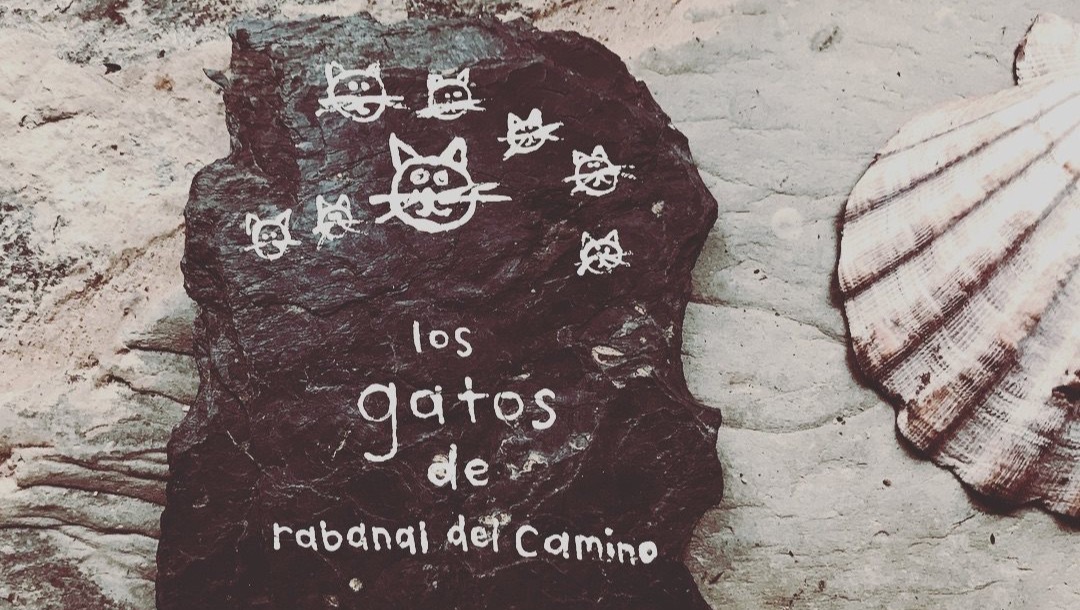 los
gatos
de
rabanal del Camino